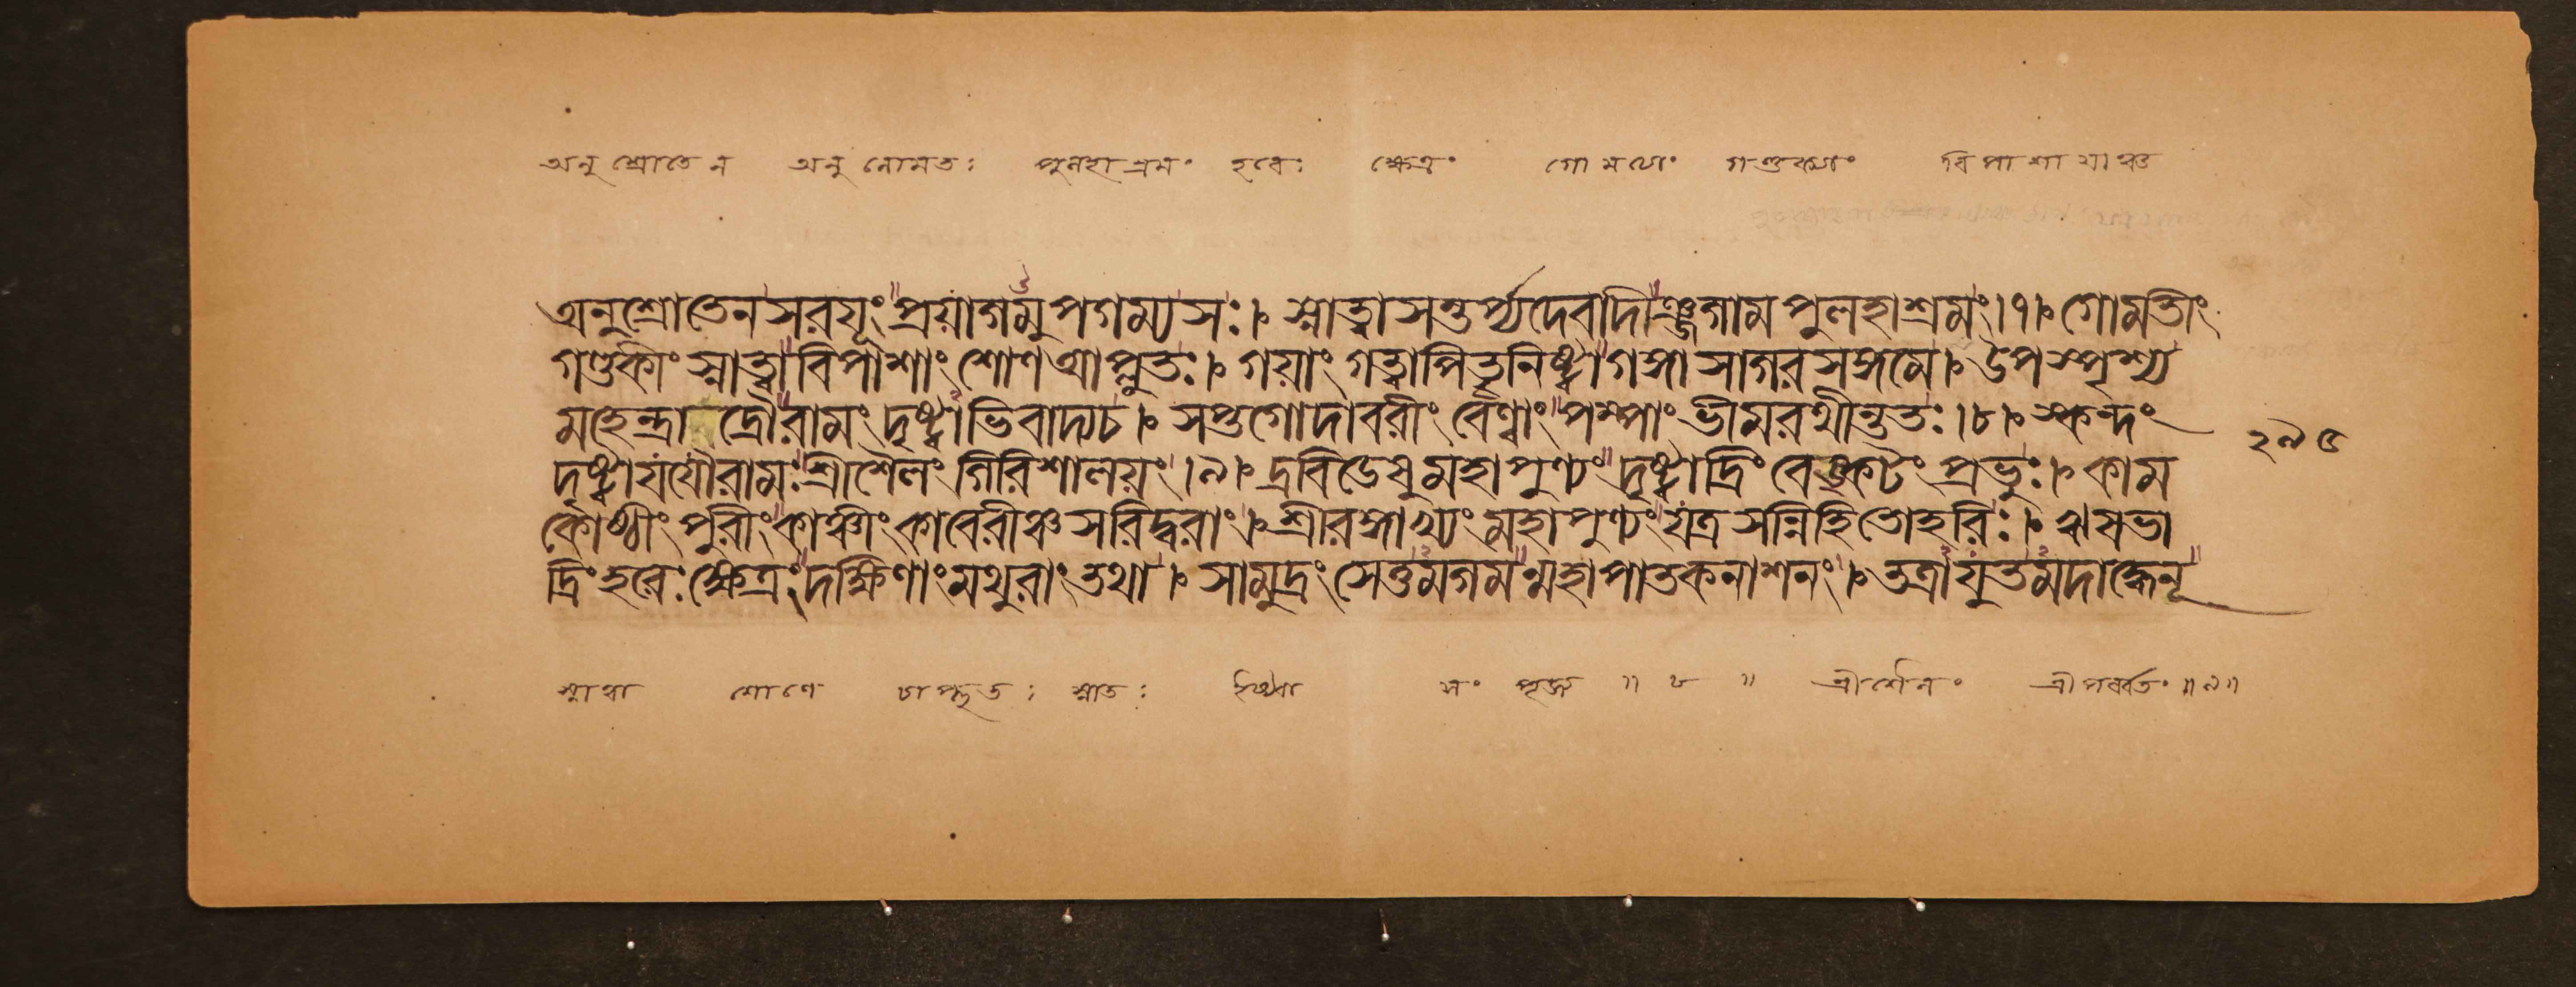 অনুশ্রোতেন অনুলোমতঃ পুলহাশ্রমং হরেঃ ক্ষেত্রং গোমত্যাং গণ্ডক্যাং বিপাশায়াঞ্চ
অনুশ্রোতেনসরযূং প্রয়াগমুপগম্যসঃ।৷ স্নাত্বাসন্তর্প্যদেবাদীঞ্জগামপুলহাশ্রমং।৭।৷ গোমতীং
গণ্ডকীং স্নাত্বাবিপাশাং শোণআপ্লুতঃ।৷ গয়াং গত্বাপিতৄনিষ্ট্বাগঙ্গাসাগরসঙ্গমে।৷ উপস্পৃশ্য
মহেন্দ্রাদ্রৌরামং দৃষ্ট্বাভিবাদ্যচ।৷ সপ্তগোদাবরীং বেণ্বাং পম্পাং ভীমরথীন্ততঃ।৮।৷ স্কন্দং
২৯৫
দৃষ্ট্বাযযৌরামঃশ্রীশৈলং গিরিশালয়ং।৯।৷ দ্রবিডেষুমহাপুণ্যং দৃষ্ট্বাদ্রিং বেঙ্কটং প্রভুঃ।৷ কাম
কোষ্ণীং পুরীং কাঞ্চীং কাবেরীঞ্চসরিদ্বরাং।৷ শ্রীরঙ্গাখ্যং মহাপুণ্যং যত্রসন্নিহিতোহরিঃ।৷ ঋষভা
দ্রিং হরেঃ ক্ষেত্রং দক্ষিণাং মথুরাং তথা।৷ সামুদ্রং সেতুমগমন্মহাপাতকনাশনং।৷ তত্রাযুতমদাদ্ধেনূ
স্নাত্বা শোণে চাপ্লুতঃ স্নাতঃ ইষ্ট্বা সং পূজ্য ॥ ৮ ॥ শ্রীশৈলং শ্রীপর্ব্বতং ॥৯॥